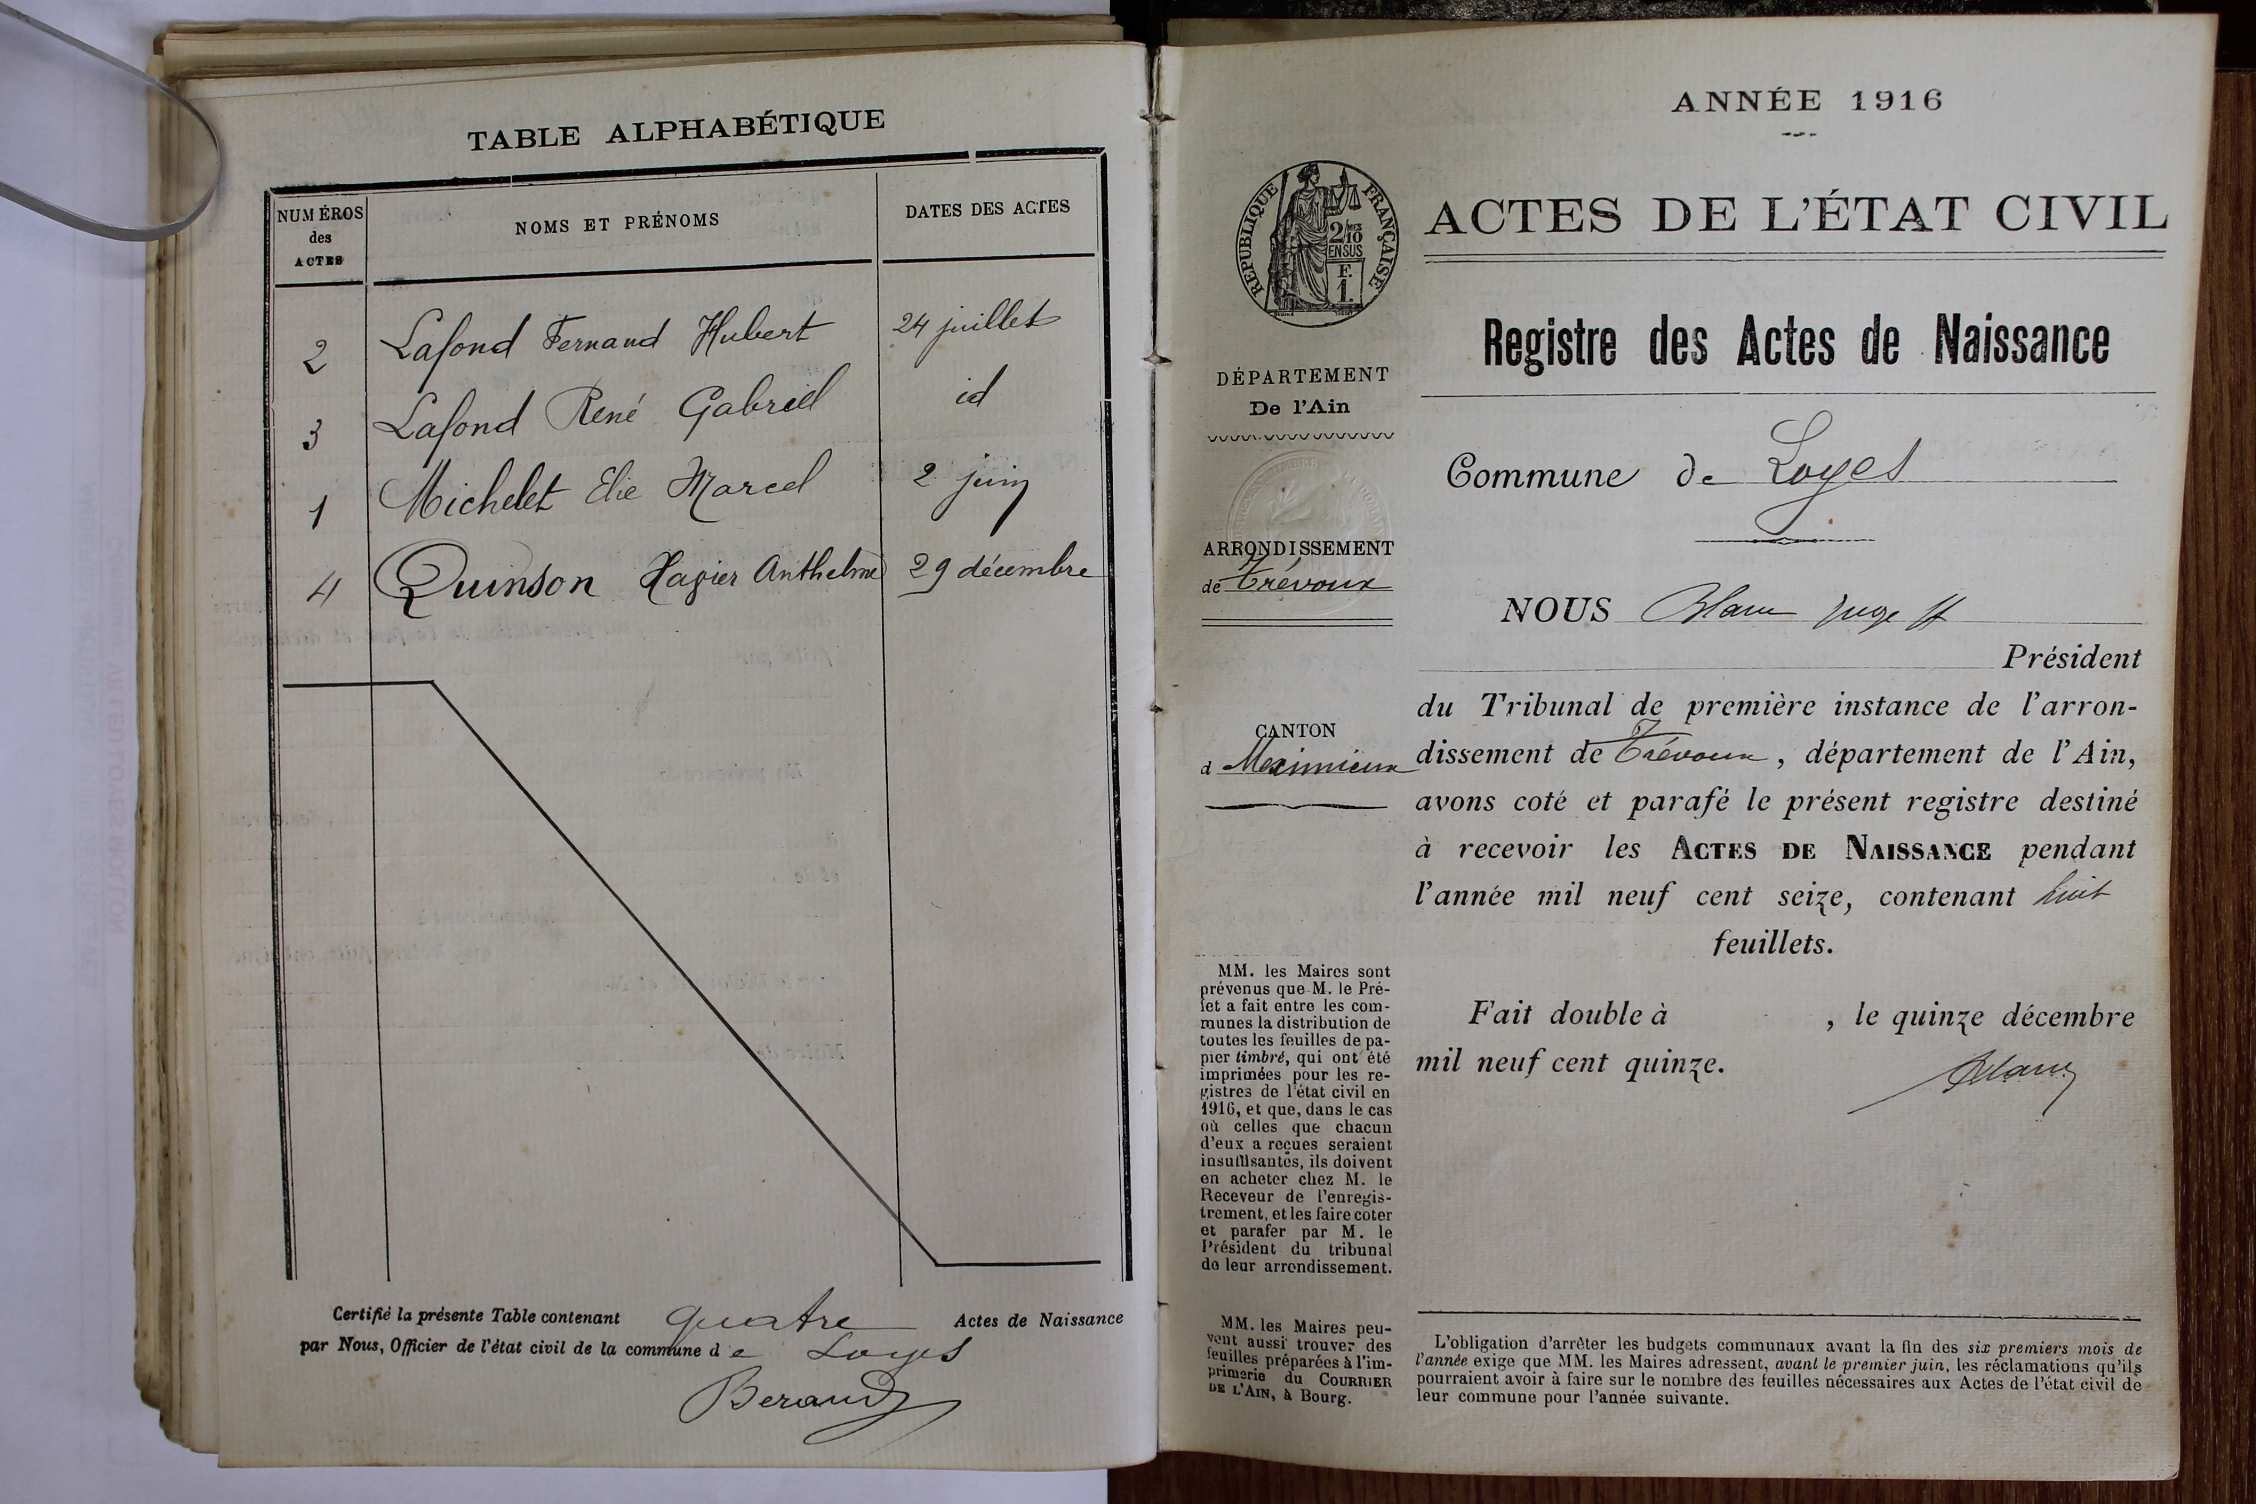 TABLE ALPHABÉTIQUE
NUMÉROS
des
ACTES
NOMS ET PRÉNOMS
DATES DES ACTES
2 Lafond Fernand Hubert 24 juillet
3 Lafond René Gabriel id
1 Michelet Elie Marcel 2 juin
4 Quinson Xavier Anthelme 29 décembre
Certifié la présente Table contenant quatre Actes de Naissance
par Nous, Officier de l'état civil de la commune de Loyes
Beraud
ANNÉE 1916
RÉPUBLIQUE FRANÇAISE
2/10
EN SUS
F.
1.
ACTES DE L'ÉTAT CIVIL
Registre des Actes de Naissance
DÉPARTEMENT
De l'Ain
Commune de Loyes
ARRONDISSEMENT
de Trévoux
CANTON
d Meximieux
NOUS Blanc juge ff
Président
du Tribunal de première instance de l'arron-
dissement de Trévoux, département de l'Ain,
avons coté et parafé le présent registre destiné
à recevoir les ACTES DE NAISSANCE pendant
l'année mil neuf cent seize, contenant huit
feuillets.
Fait double à , le quinze décembre
mil neuf cent quinze.
Blanc
MM. les Maires sont
prévenus que M. le Pré-
fet a fait entre les com-
munes la distribution de
toutes les feuilles de pa-
pier timbré, qui ont été
imprimées pour les re-
gistres de l'état civil en
1916, et que, dans le cas
où celles que chacun
d'eux a reçues seraient
insuffisantes, ils doivent
en acheter chez M. le
Receveur de l'enregis-
trement, et les faire coter
et parafer par M. le
Président du tribunal
de leur arrondissement.
MM. les Maires peu-
vent aussi trouver des
feuilles préparées à l'im-
primerie du COURRIER
DE L'AIN, à Bourg.
L'obligation d'arrêter les budgets communaux avant la fin des six premiers mois de
l'année exige que MM. les Maires adressent, avant le premier juin, les réclamations qu'ils
pourraient avoir à faire sur le nombre des feuilles nécessaires aux Actes de l'état civil de
leur commune pour l'année suivante.